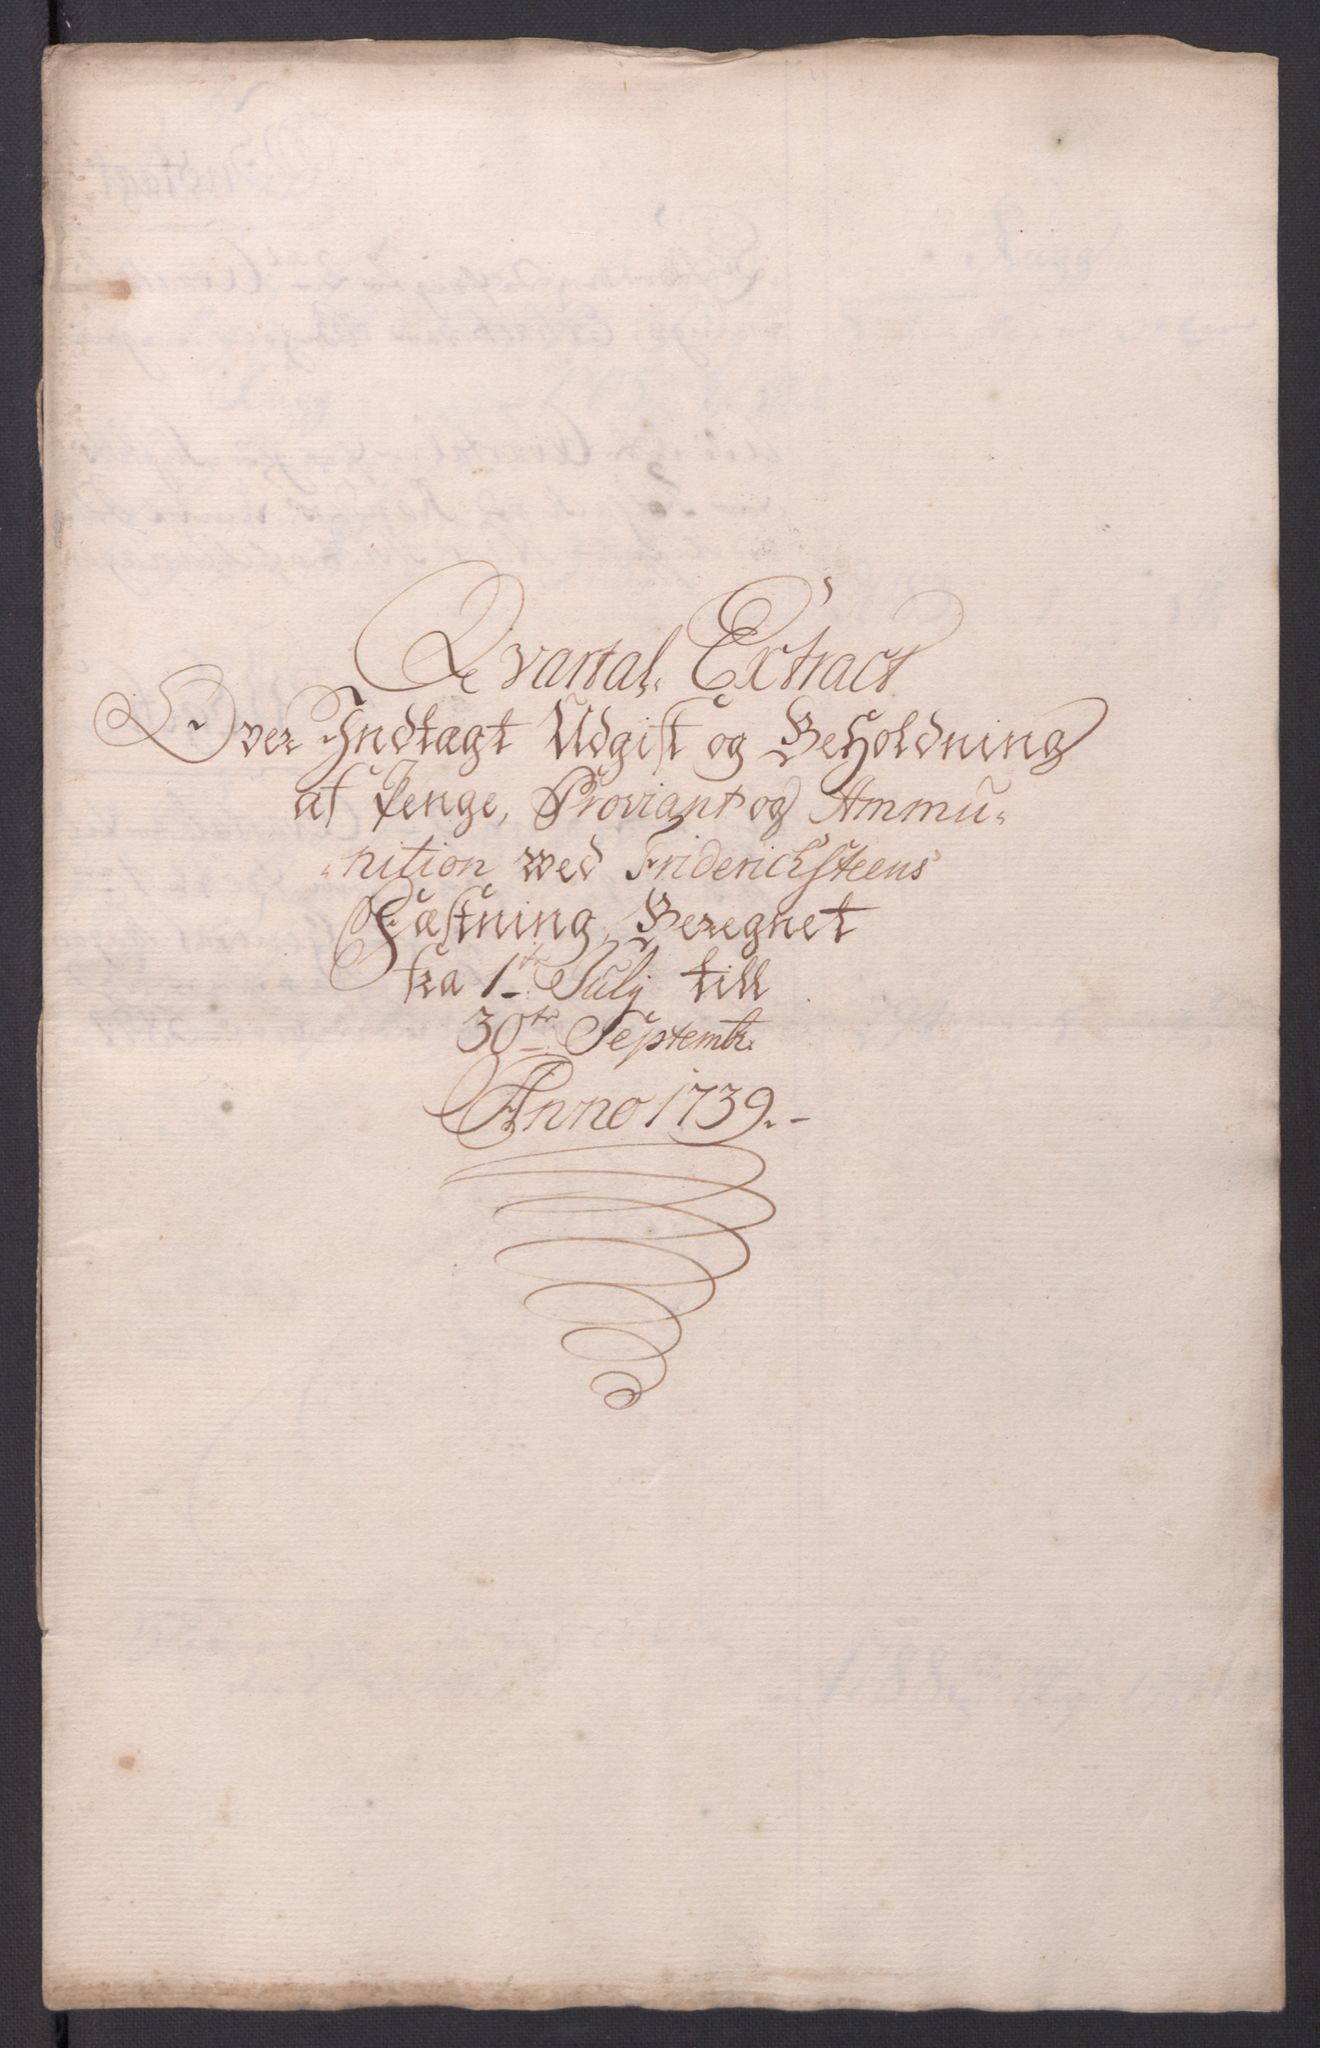 Qvartal. Extract
Over Indtagt Udgift og Beholdning
af Penge, Proviant og Ammu-
-nition wed Friderichsteens
Fæstning, Beregnet
fra 1te Julÿ till
30te Septembr.
Anno 1739.-